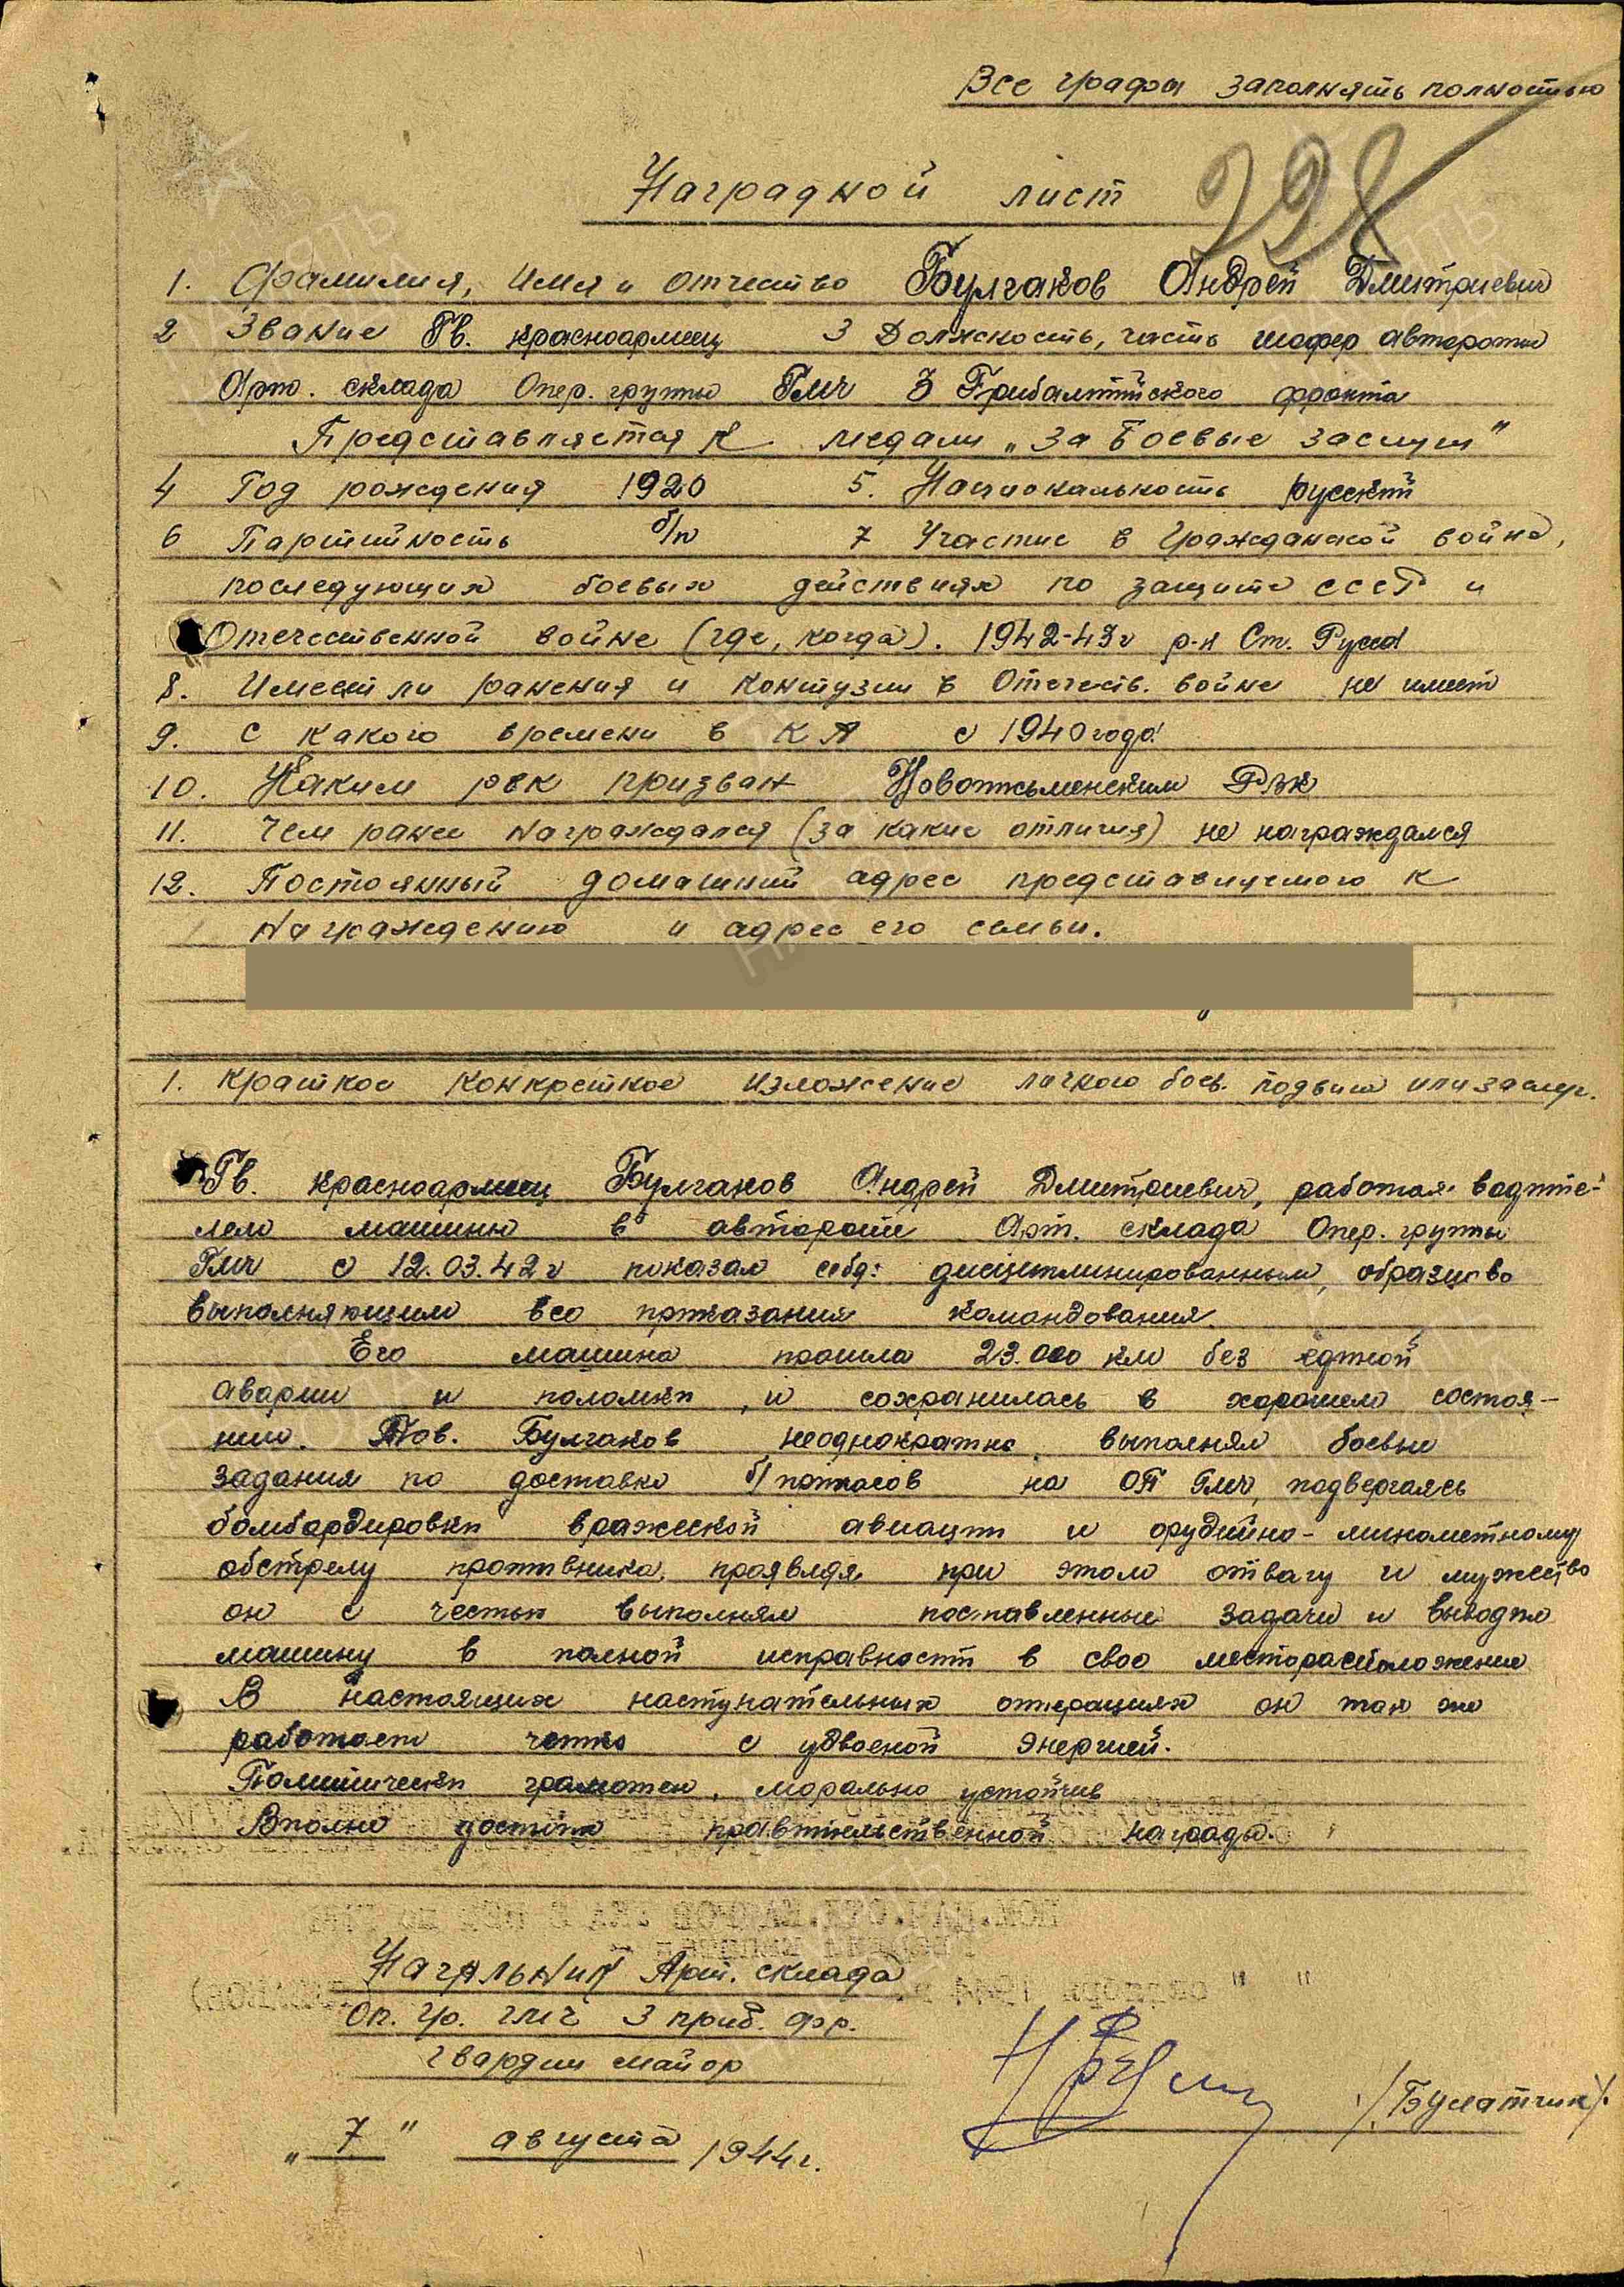 Все графы заполнять полностью
228
Наградной лист
1. Фамилия, Имя и отчество Булгаков Андрей Дмитриевич
2 Звание Гв. красноармеец 3 Должность, часть шофер автороты
Арт. склада Опер. группы Гмч 3 Прибалтийского фронта
Представляется к медали „За Боевые заслуги"
4 Год рождения 1920 5. Национальность русский
6 Партийность б/п 7 Участие в гражданской войне,
последующих боевых действиях по защите СССР и
Отечественной войне (где, когда). 1942-43г р-н Ст. Русса
8. Имеет ли ранения и контузии в Отечеств. войне не имеет
9. С какого времени в КА с 1940 года
10. Каким рвк призван Новописьменским Рвк
11. Чем ранее награждался (за какие отличия) не награждался
12. Постоянный домашний адрес представляемого к
награждению и адрес его семьи.
1. Краткое конкретное изложение личного боев. подвига или заслуг.
Гв. красноармеец Булгаков Андрей Дмитриевич, работая водите-
лем машины в автороте Арт. склада Опер. группы
Гмч с 12.03.42г показал себя: дисциплинированным, образцово
выполняющим все приказания командования.
Его машина прошла 23.000 км без единой
аварии и поломки, и сохранилась в хорошем состоя-
нии. Тов. Булгаков неоднократно выполнял боевые
задания по доставке б/припасов на ОП Гмч, подвергаясь
бомбардировки вражеской авиации и орудийно-минометному
обстрелу противника, проявляя при этом отвагу и мужество
он с честью выполнял поставленные задачи и выводил
машину в полной исправности в свое месторасположение
В настоящих наступательных операциях он так же
работает четко с удвоеной энергией.
Политически грамотен, морально устойчив
Вполне достоин правительственной награды.
Начальник Арт. склада
Оп. гр. гмч 3 приб. фр.
гвардии майор
/Бумагин/
„7" августа 1944г.